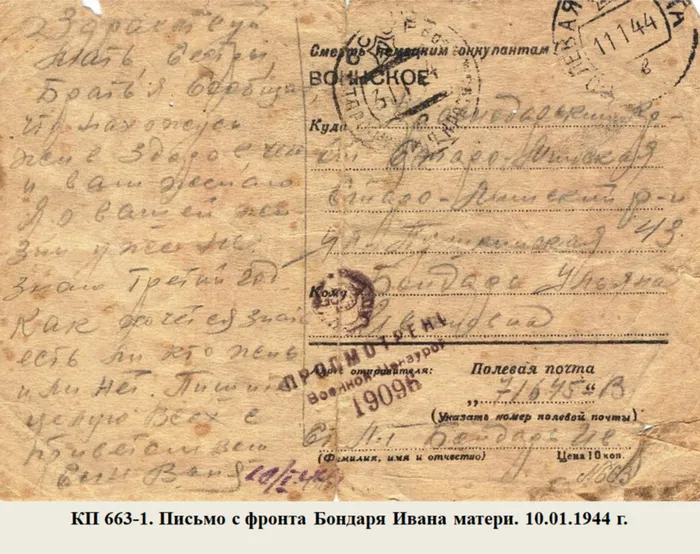 Здраствуй
мать сестры,
Братья Сообщаю
что нахожусь
жив здоров, чего
и вам желаю
Я о вашей жи-
зни уже не
знаю третий год
Как хочется знать
есть ли кто жив
или нет. Пишите
целую Всех с
приветом ваш
Сын Ваня
10/I 44
Смерть немецким оккупантам!
ВОИНСКОЕ
11 1 44
в
Куда
Старо-Минская
Старо-Минский р-н
ул. Пушкинская 43
Кому
Бондарь Ульяна
Ивановна
ПРОСМОТРЕНО
Военной Цензурой
19096
Адрес отправителя:
Полевая почта
„71645“ В
(Указать номер полевой почты)
Бондарь Ив
(Фамилия, имя и отчество)
Цена 10 коп.
КП 663-1. Письмо с фронта Бондаря Ивана матери. 10.01.1944 г.